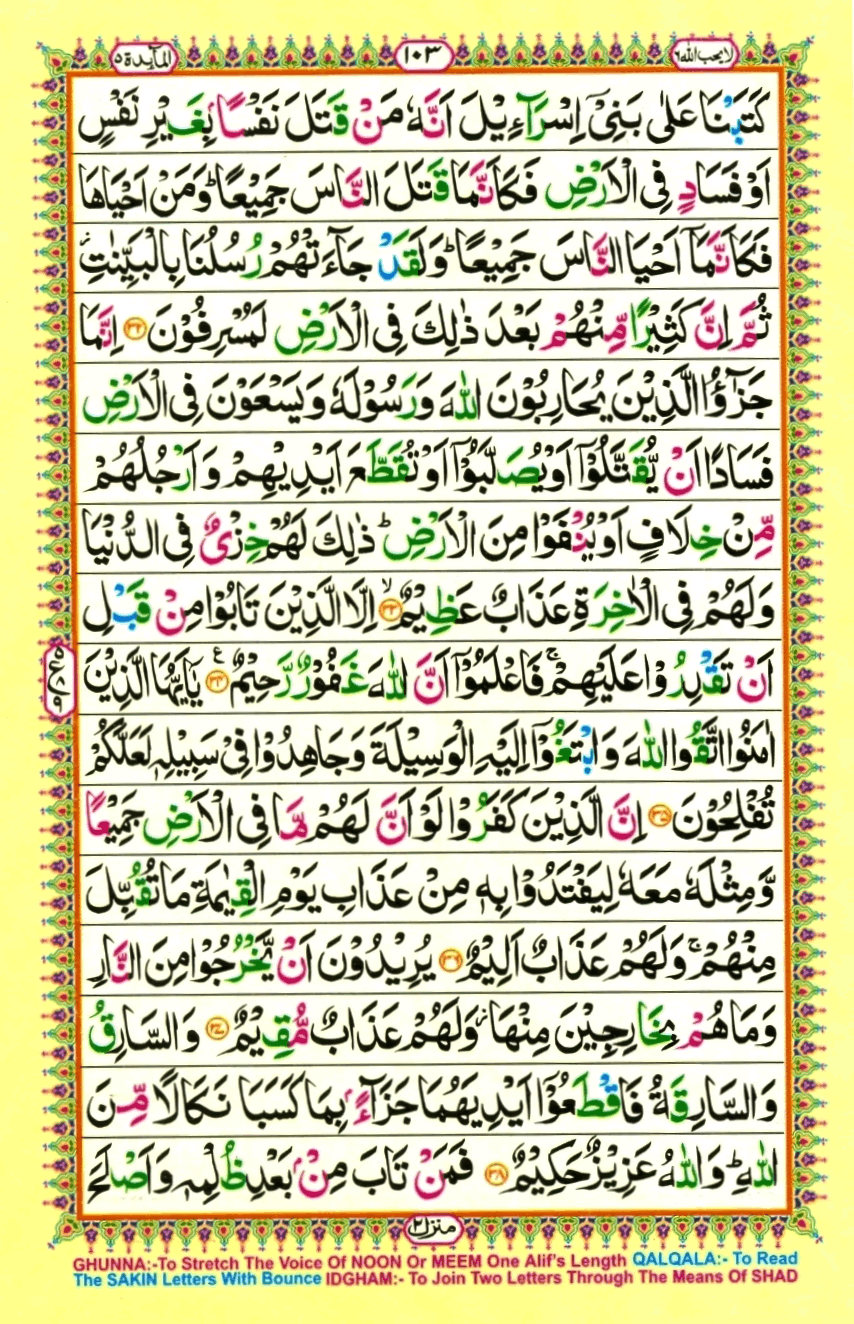 المآيدة ٥
١٠٣
لا يحب الله ٦
كَتَبْنَا عَلٰى بَنِىْٓ اِسْرَآءِيْلَ اَنَّهٗ مَنْ قَتَلَ نَفْسًا بِغَيْرِ نَفْسٍ
اَوْ فَسَادٍ فِى الْاَرْضِ فَكَاَنَّمَا قَتَلَ النَّاسَ جَمِيْعًا ؕ وَمَنْ اَحْيَاهَا
فَكَاَنَّمَاۤ اَحْيَا النَّاسَ جَمِيْعًا ؕ وَلَقَدْ جَآءَتْهُمْ رُسُلُنَا بِالْبَيِّنٰتِ ؗ
ثُمَّ اِنَّ كَثِيْرًا مِّنْهُمْ بَعْدَ ذٰلِكَ فِى الْاَرْضِ لَمُسْرِفُوْنَ ﴿۳۲﴾ اِنَّمَا
جَزٰٓؤُا الَّذِيْنَ يُحَارِبُوْنَ اللّٰهَ وَرَسُوْلَهٗ وَيَسْعَوْنَ فِى الْاَرْضِ
فَسَادًا اَنْ يُّقَتَّلُوْۤا اَوْ يُصَلَّبُوْۤا اَوْ تُقَطَّعَ اَيْدِيْهِمْ وَاَرْجُلُهُمْ
مِّنْ خِلَافٍ اَوْ يُنْفَوْا مِنَ الْاَرْضِ ؕ ذٰلِكَ لَهُمْ خِزْىٌ فِى الدُّنْيَا
وَلَهُمْ فِى الْاٰخِرَةِ عَذَابٌ عَظِيْمٌ ﴿۳۳﴾ ۙ اِلَّا الَّذِيْنَ تَابُوْا مِنْ قَبْلِ
اَنْ تَقْدِرُوْا عَلَيْهِمْ ۚ فَاعْلَمُوْۤا اَنَّ اللّٰهَ غَفُوْرٌ رَّحِيْمٌ ﴿۳۴﴾ ع يٰۤاَيُّهَا الَّذِيْنَ
اٰمَنُوا اتَّقُوا اللّٰهَ وَابْتَغُوْۤا اِلَيْهِ الْوَسِيْلَةَ وَجَاهِدُوْا فِىْ سَبِيْلِهٖ لَعَلَّكُمْ
تُفْلِحُوْنَ ﴿۳۵﴾ اِنَّ الَّذِيْنَ كَفَرُوْا لَوْ اَنَّ لَهُمْ مَّا فِى الْاَرْضِ جَمِيْعًا
وَّمِثْلَهٗ مَعَهٗ لِيَفْتَدُوْا بِهٖ مِنْ عَذَابِ يَوْمِ الْقِيٰمَةِ مَا تُقُبِّلَ
مِنْهُمْ ۚ وَلَهُمْ عَذَابٌ اَلِيْمٌ ﴿۳۶﴾ يُرِيْدُوْنَ اَنْ يَّخْرُجُوْا مِنَ النَّارِ
وَمَا هُمْ بِخَارِجِيْنَ مِنْهَا ؗ وَلَهُمْ عَذَابٌ مُّقِيْمٌ ﴿۳۷﴾ وَالسَّارِقُ
وَالسَّارِقَةُ فَاقْطَعُوْۤا اَيْدِيَهُمَا جَزَآءًۢ بِمَا كَسَبَا نَكَالًا مِّنَ
اللّٰهِ ؕ وَاللّٰهُ عَزِيْزٌ حَكِيْمٌ ﴿۳۸﴾ فَمَنْ تَابَ مِنْۢ بَعْدِ ظُلْمِهٖ وَاَصْلَحَ
منزل ٢
GHUNNA:-To Stretch The Voice Of NOON Or MEEM One Alif's Length QALQALA:- To Read
The SAKIN Letters With Bounce IDGHAM:- To Join Two Letters Through The Means Of SHAD